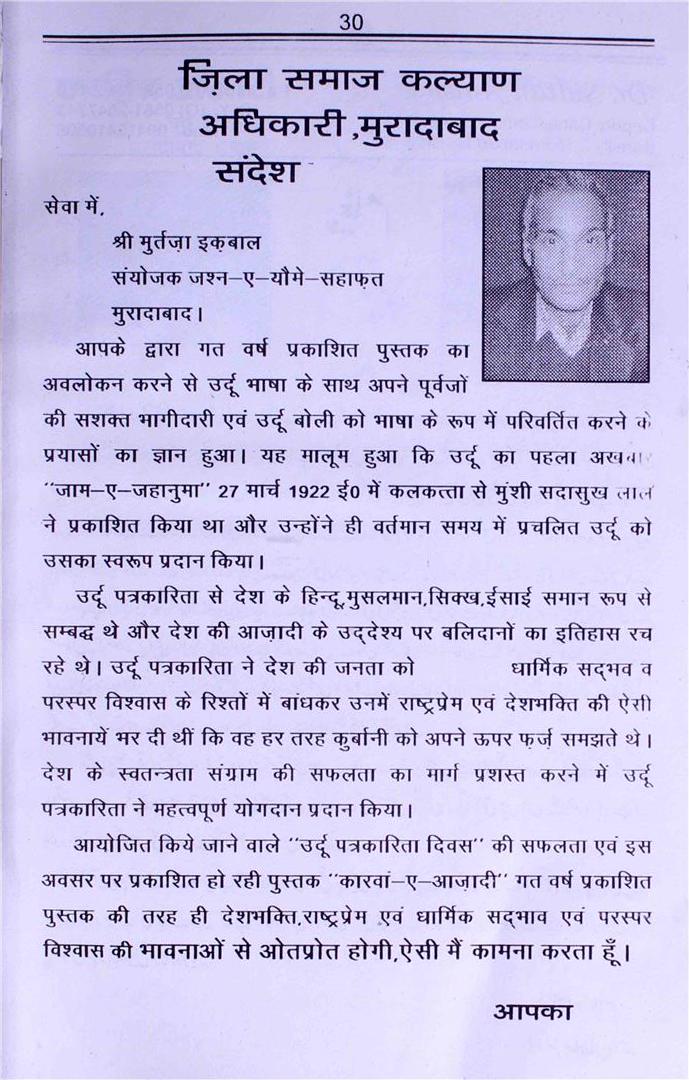 30
ज़िला समाज कल्याण
अधिकारी,मुरादाबाद
संदेश
सेवा में,
श्री मुर्तज़ा इक़बाल
संयोजक जश्न-ए-यौमे-सहाफ़त
मुरादाबाद।
आपके द्वारा गत वर्ष प्रकाशित पुस्तक का
अवलोकन करने से उर्दू भाषा के साथ अपने पूर्वजों
की सशक्त भागीदारी एवं उर्दू बोली को भाषा के रूप में परिवर्तित करने के
प्रयासों का ज्ञान हुआ। यह मालूम हुआ कि उर्दू का पहला अखबार
"जाम-ए-जहानुमा" 27 मार्च 1922 ई0 में कलकत्ता से मुंशी सदासुख लाल
ने प्रकाशित किया था और उन्होंने ही वर्तमान समय में प्रचलित उर्दू को
उसका स्वरूप प्रदान किया।
उर्दू पत्रकारिता से देश के हिन्दू,मुसलमान,सिक्ख,ईसाई समान रूप से
सम्बद्ध थे और देश की आज़ादी के उद्देश्य पर बलिदानों का इतिहास रच
रहे थे। उर्दू पत्रकारिता ने देश की जनता को धार्मिक सद्भव व
परस्पर विश्वास के रिश्तों में बांधकर उनमें राष्ट्रप्रेम एवं देशभक्ति की ऐसी
भावनायें भर दी थीं कि वह हर तरह कुर्बानी को अपने ऊपर फ़र्ज़ समझते थे।
देश के स्वतन्त्रता संग्राम की सफलता का मार्ग प्रशस्त करने में उर्दू
पत्रकारिता ने महत्वपूर्ण योगदान प्रदान किया।
आयोजित किये जाने वाले "उर्दू पत्रकारिता दिवस" की सफलता एवं इस
अवसर पर प्रकाशित हो रही पुस्तक "कारवां-ए-आज़ादी" गत वर्ष प्रकाशित
पुस्तक की तरह ही देशभक्ति,राष्ट्रप्रेम एवं धार्मिक सद्भाव एवं परस्पर
विश्वास की भावनाओं से ओतप्रोत होगी,ऐसी मैं कामना करता हूँ।
आपका